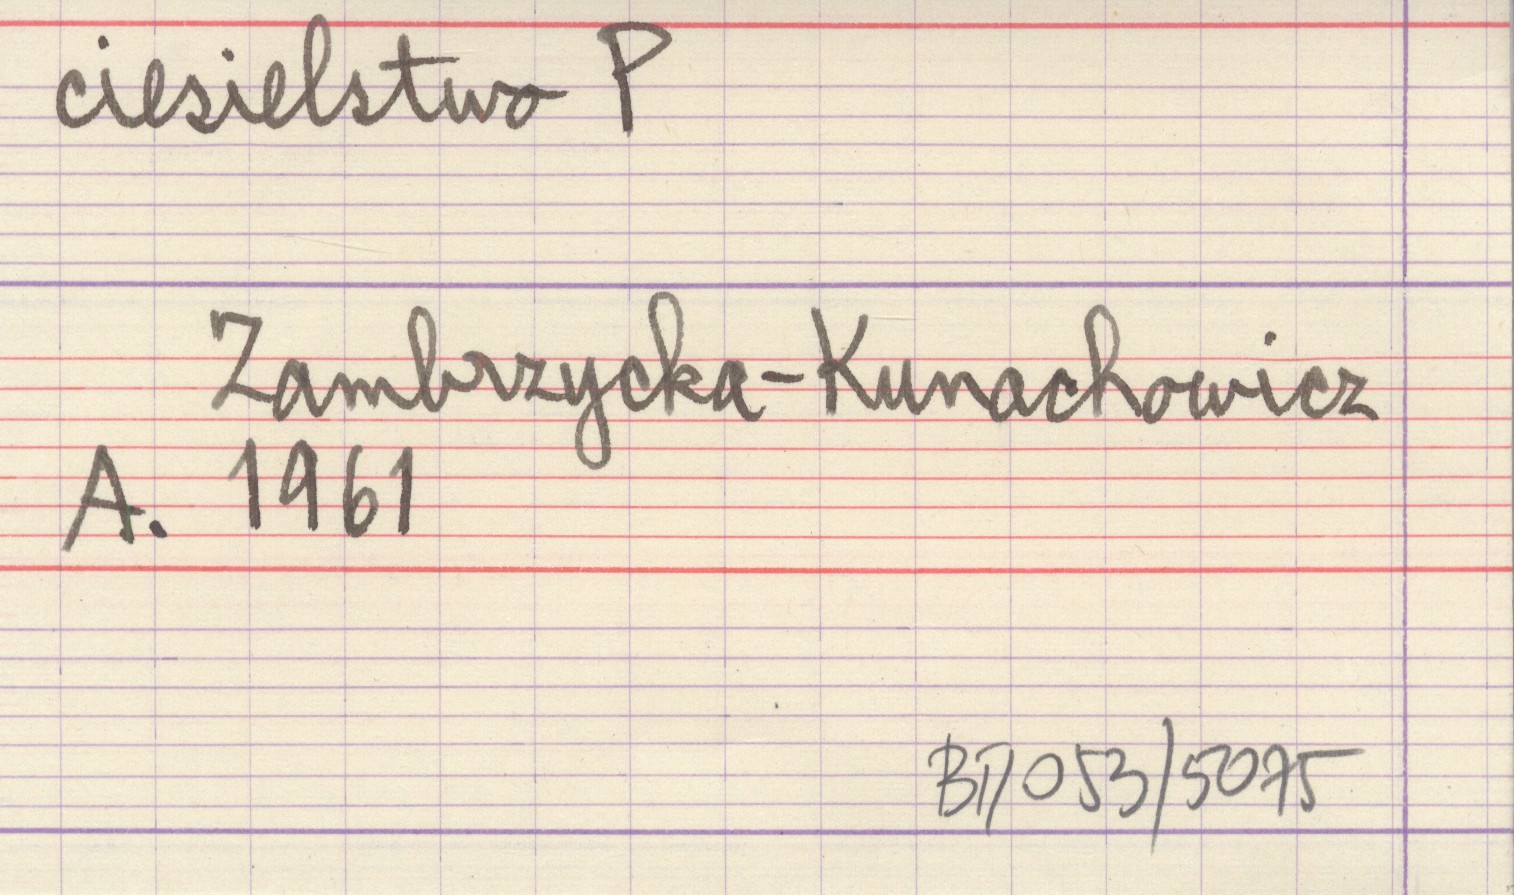 ciesielstwo P
Zambrzycka-Kunachowicz
A. 1961
BD/053/5075